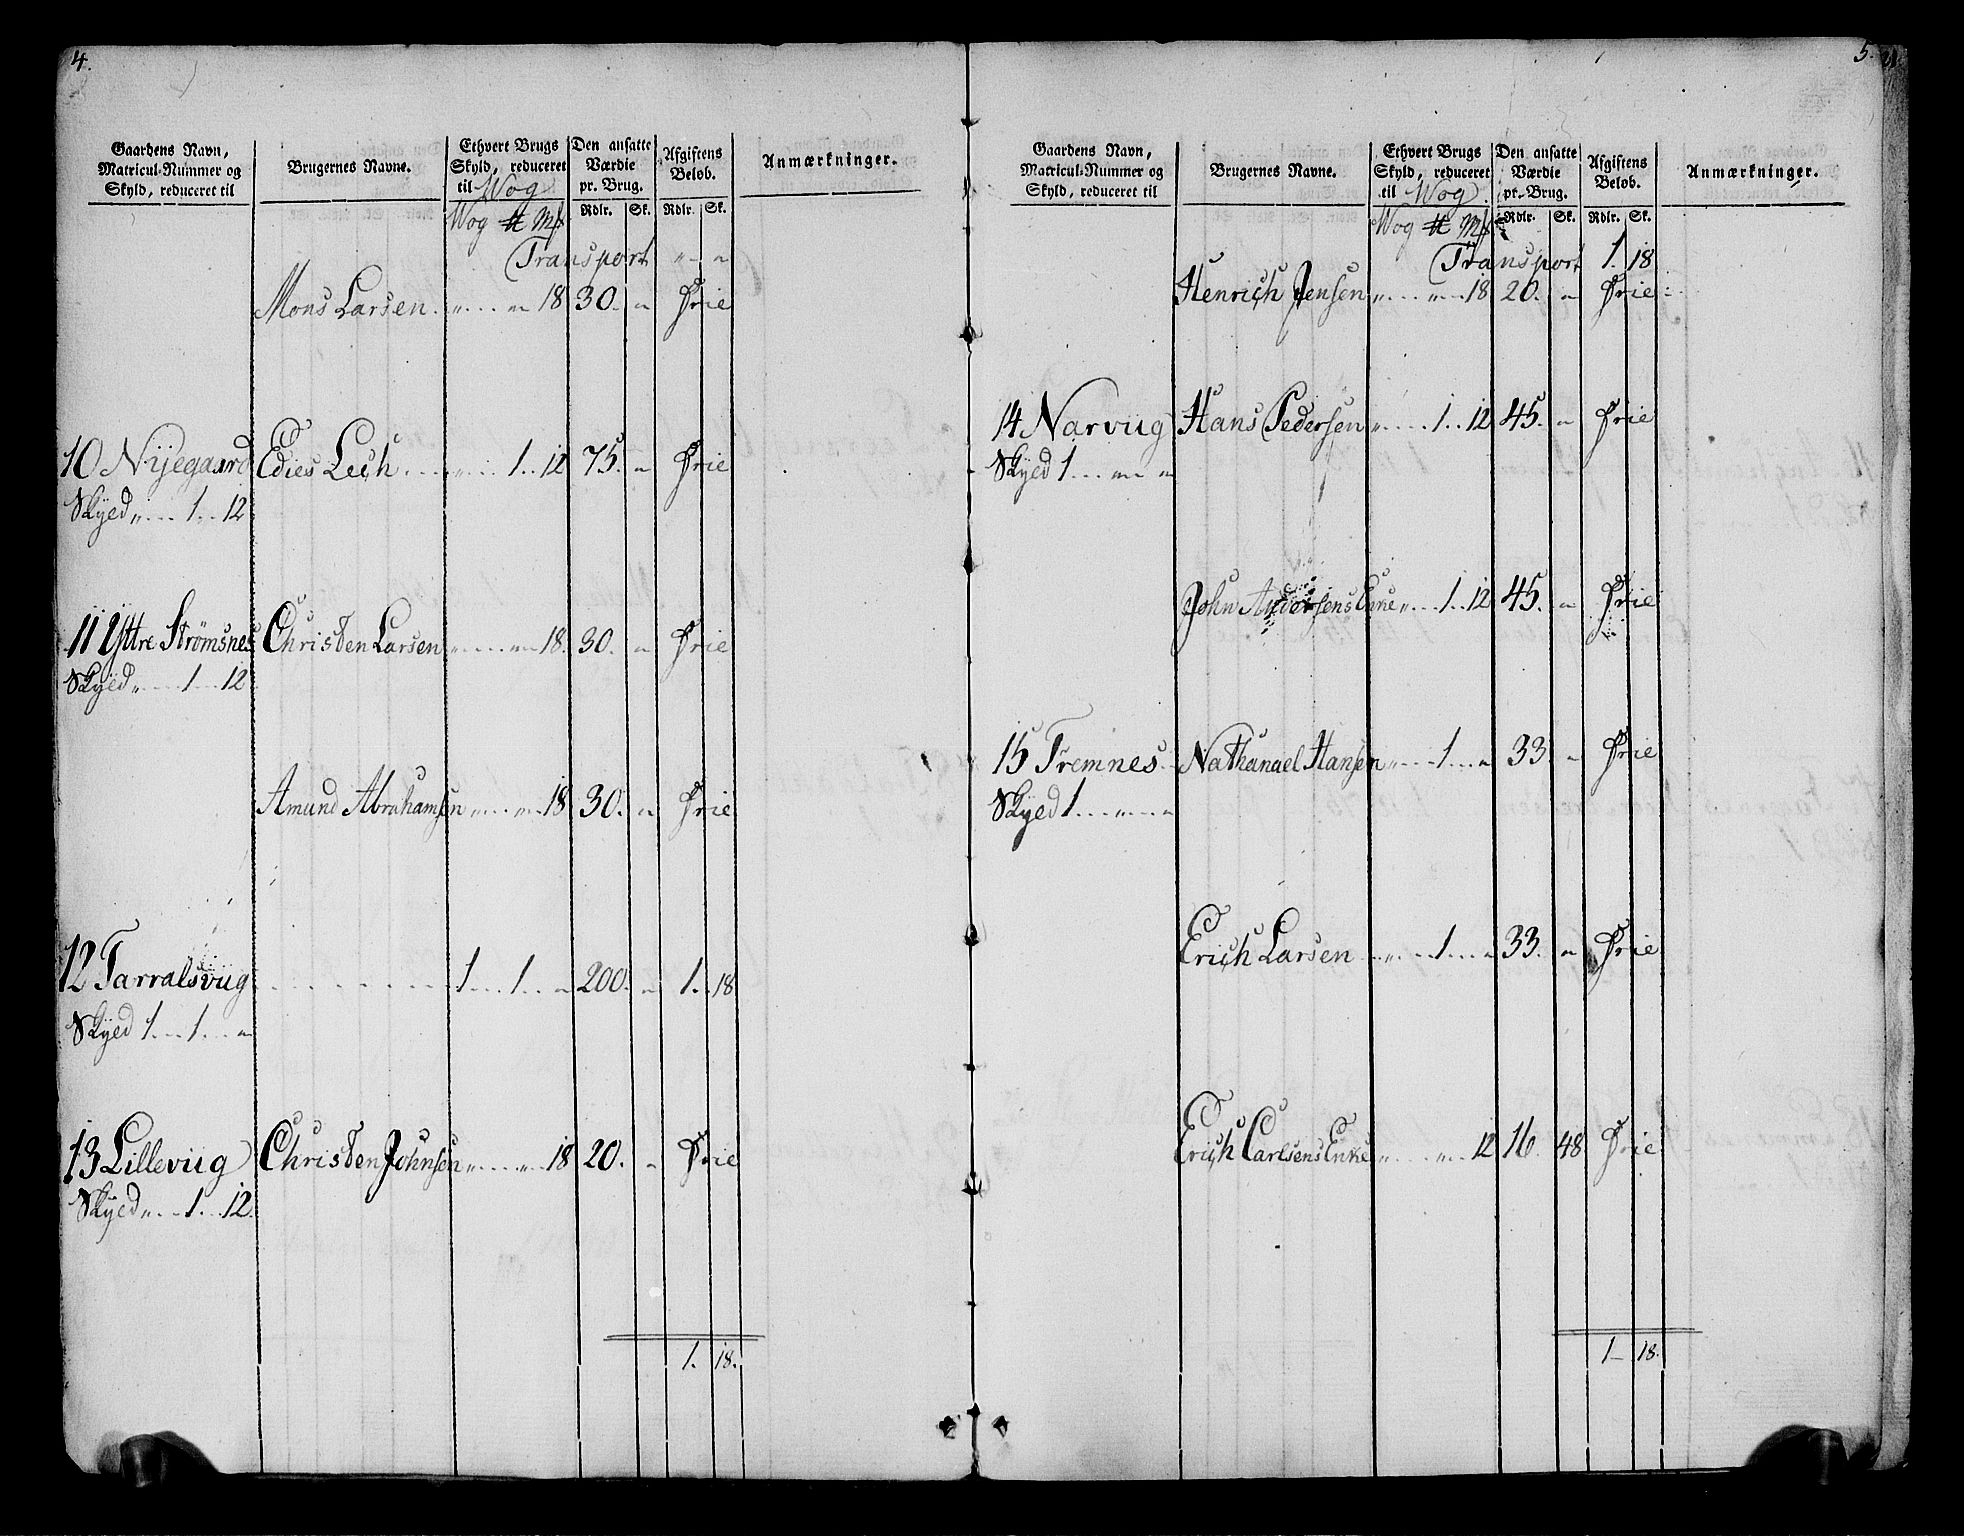 4.
Gaardens Navn, Matricul-Nummer og Skyld, reduceret til
Brugernes Navne.
Ethvert Brugs Skyld, reduceret til Wog
Den ansatte Værdie pr. Brug.
Afgiftens Beløb.
Anmærkninger.
Wog ℔ Mk Rdlr. Sk. Rdlr. Sk.
Transport " "
Mons Larsen " " 18 30. " Frie
10 Nijegaard Edies Lech " 1 12 75. " Frie
Skyed " 1 12
11 Yttre Strømsnes Christen Larsen " " 18. 30. " Frie
Skyed " 1 12
Amund Abrahamsen " " 18 30. " Frie
12 Tarralsviig 1 1 " 200. " 1. 18
Skyed 1 1 "
13 Lilleviig Christen Johnsen " " 18 20. " Frie
Skyed " 1 12.
1. 18.
5.
Gaardens Navn, Matricul-Nummer og Skyld, reduceret til
Brugernes Navne.
Ethvert Brugs Skyld, reduceret til Wog.
Den ansatte Værdie pr. Brug.
Afgiftens Beløb.
Anmærkninger.
Wog ℔ Mk Rdlr. Sk. Rdlr. Sk.
Transport 1. 18
Henrich Jensen " " 18 20. " Frie
14 Narviig Hans Pedersen " 1 12 45. " Frie
Skyed 1 " "
John Andersens Enke " 1 12 45. " Frie
15 Tremnes Nathanael Hansen " 1 " 33 " Frie
Skyed 1 " "
Erich Larsen " 1 " 33. " Frie
Erich Carlsens Enke " " 12 16. 48 Frie
1 – 18.